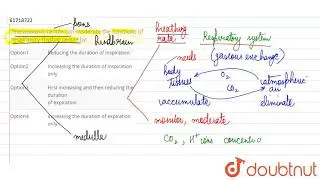 61718722
pons
Pneumotaxic centre can moderate the functions of
respiratory rhythm center by
hindbrain
Option1 Reducing the duration of expiration
Option2 Increasing the duration of inspiration
only
Option3 First increasing and then reducing the
duration
of expiration
Option4 Increasing the duration of expiration
only
medulla
breathing
rate
Respiratory system
needs (gaseous exchange)
body
tissues
O2
CO2
atmospheric
air
accumulate
eliminate
monitor, moderate
CO2, H+ ions concentra
doubtnut